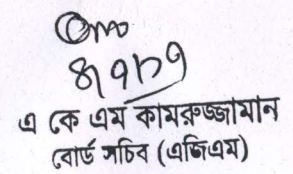 এ কে এম কামরুজ্জামান
বোর্ড সচিব (এজিএম)